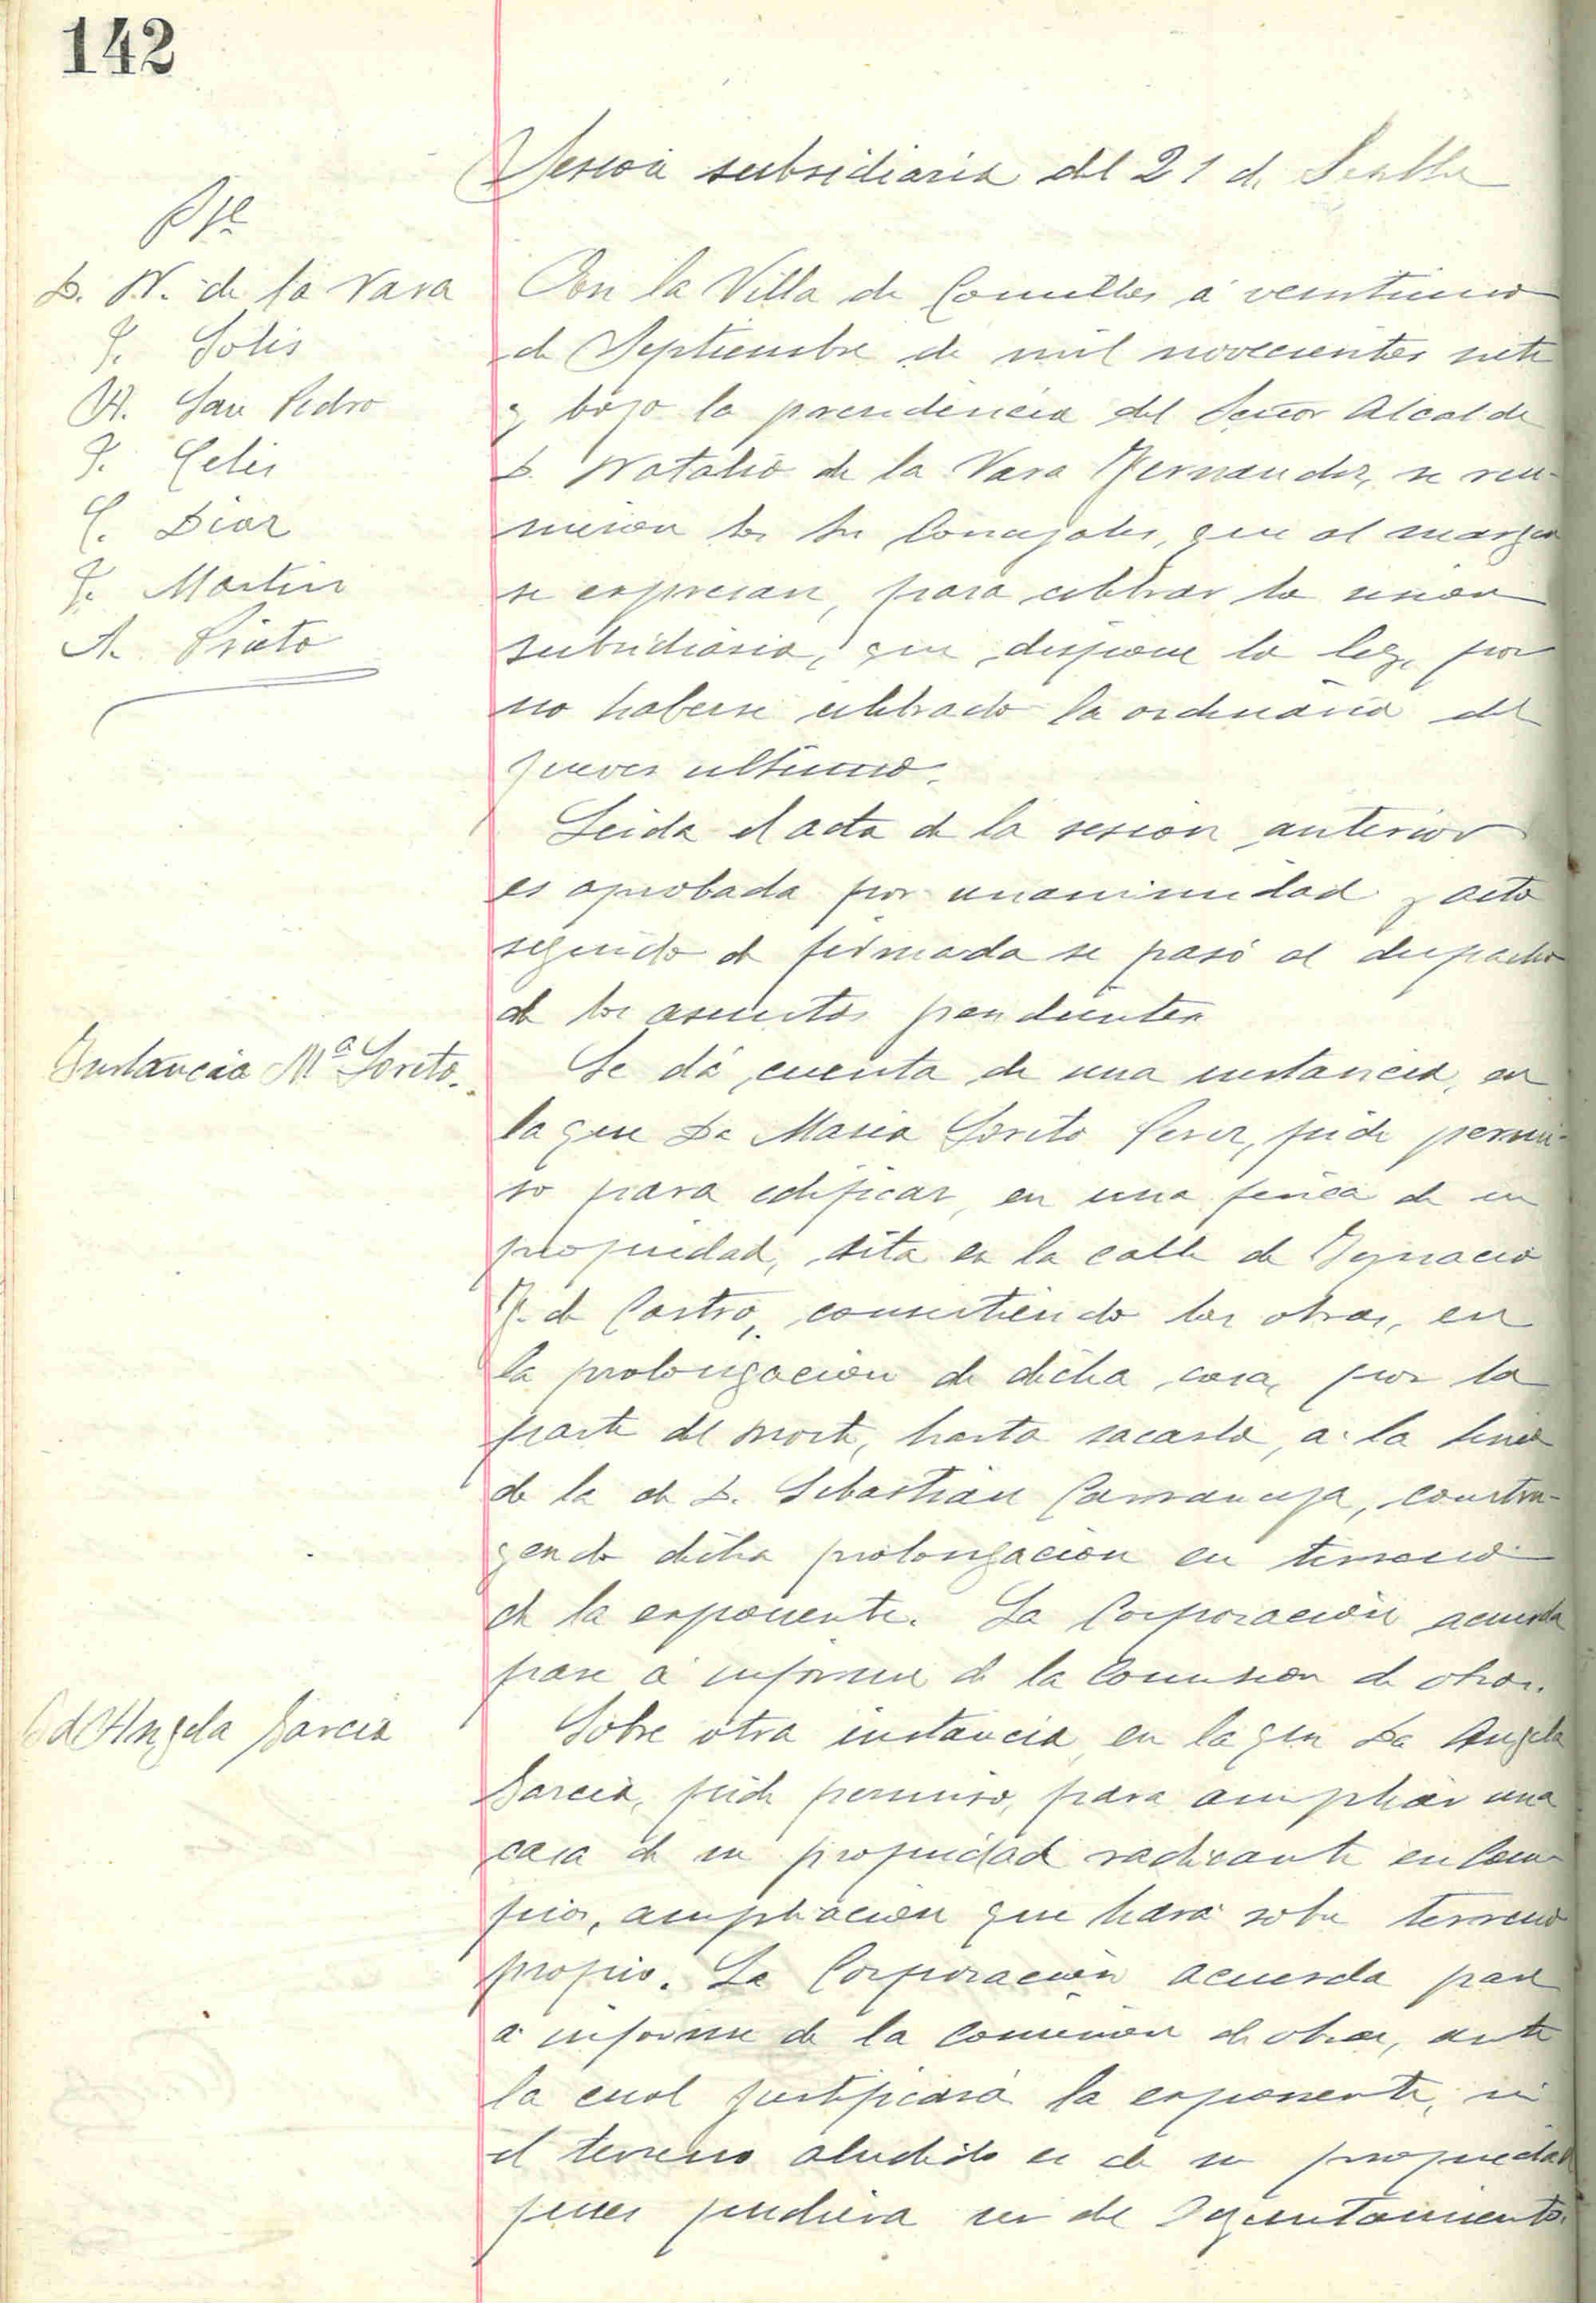 142
Sesion subsidiaria del 21 de Septbre
Pte
D. N. de la Vara
F. Solis
M. San Pedro
F. Celis
C. Diaz
F. Martin
A. Prieto
En la Villa de Comillas á veintiuno
de Septiembre de mil novecientos siete
y bajo la presidencia del Señor Alcalde
D. Natalio de la Vara Fernandez, se reu-
nieron los Sres Concejales, que al margen
se expresan, para celebrar la sesion
subsidiaria, que dispone la ley, por
no haberse celebrado la ordinaria del
jueves ultimo.
Leida el acta de la sesion anterior
es aprobada por unanimidad y acto
seguido de firmada se pasó al despacho
de los asuntos pendientes
Instancia Mª Loreto.
Se dá cuenta de una instancia, en
la que Da Maria Loreto Perez, pide permi-
so para edificar, en una finca de su
propiedad, sita en la calle de Ygnacio
F. de Castro, consistiendo las obras, en
la prolongacion de dicha casa, por la
parte del norte, hasta sacarla, a la linea
de la de D. Sebastián Carranceja, constru-
yendo dicha prolongacion en terreno
de la exponente. La Corporación acuerda
pase á informe de la Comision de obras.
Id Angela Garcia
Sobre otra instancia, en la que Da Angela
Garcia, pide permiso, para ampliar una
casa de su propiedad radicante en Cam-
pios, ampliacion que hará sobre terreno
propio. La Corporación acuerda pase
a informe de la Comision de obras, ante
la cual justificará la exponente, si
el terreno aludido es de su propiedad
pues pudiera ser del Ayuntamiento.